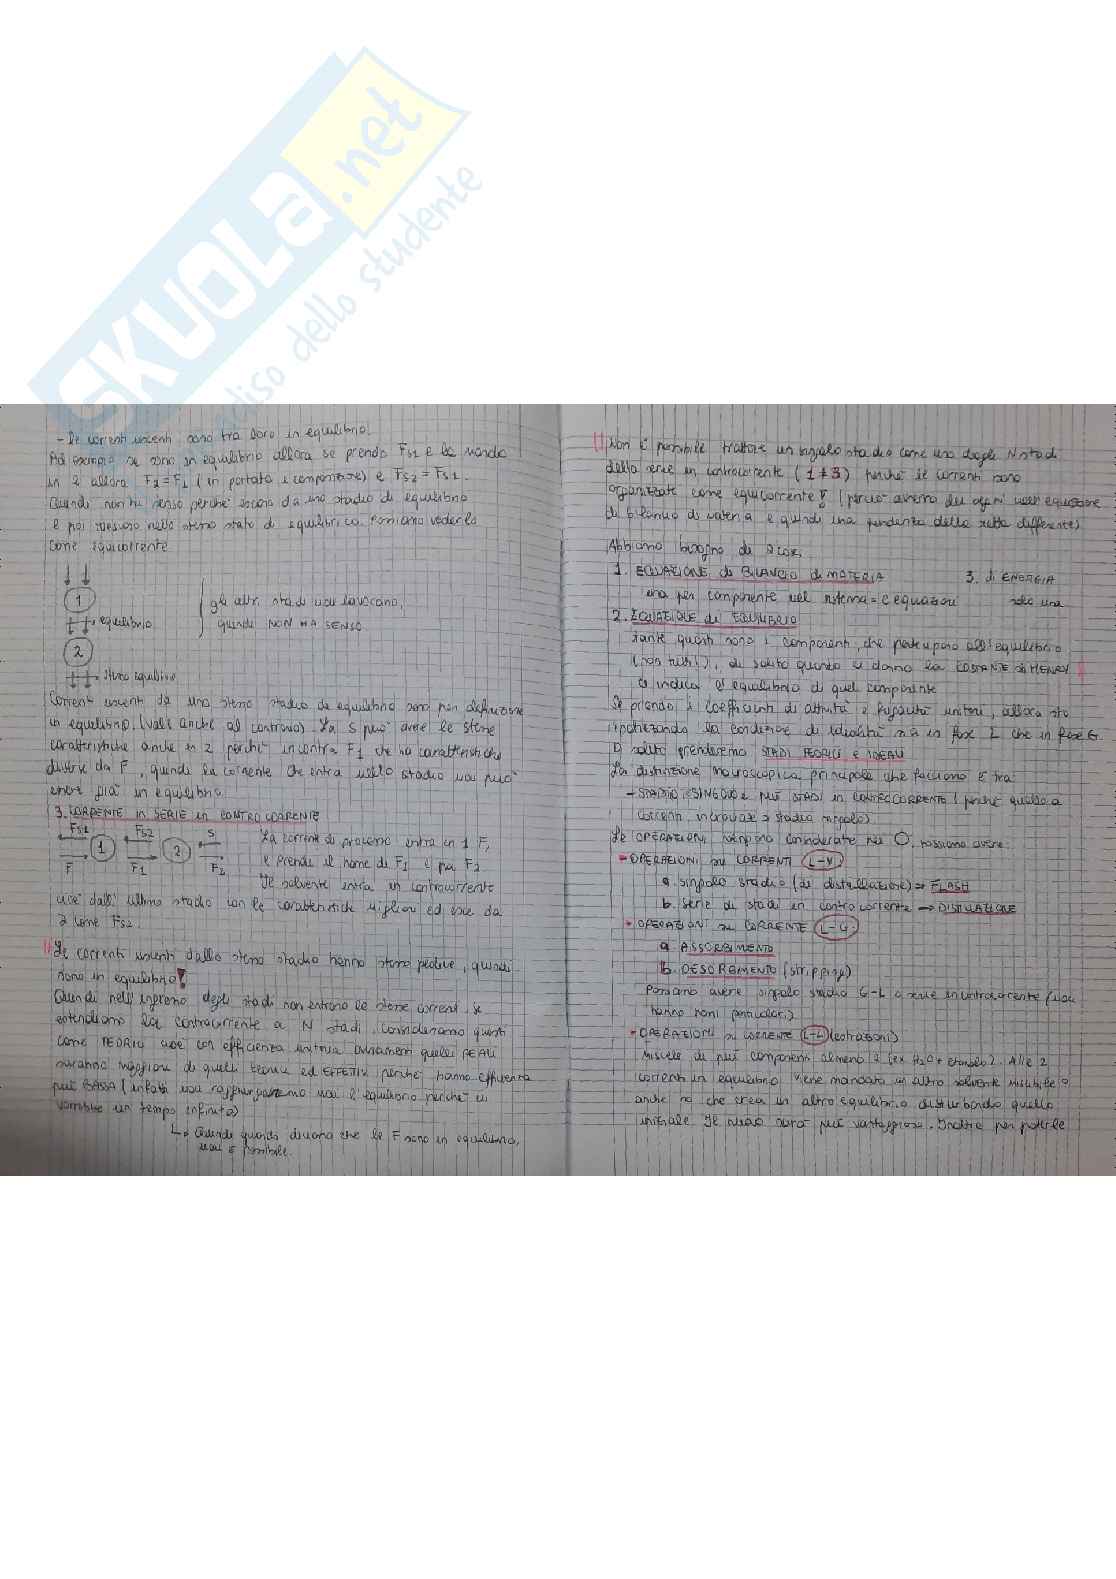 SKUOLA.net
paradiso dello studente
- Le correnti uscenti sono tra loro in equilibrio.
Ad esempio se sono in equilibrio allora se prendo FS1 e la mando
in 2 allora F2=F1 (in portata e composizione) e FS2=FS1.
Quindi non ha senso perché escono da uno stadio di equilibrio
e poi riescono nello stesso stato di equilibrio. Possiamo vederlo
come equicorrente
1
equilibrio
2
stesso equilibrio
gli altri stadi non lavorano,
quindi NON HA SENSO
Correnti uscenti da uno stesso stadio di equilibrio sono per definizione
in equilibrio. (vale anche al contrario) La S può avere le stesse
caratteristiche anche in 2 perché incontra F1 che ha caratteristiche
diverse da F, quindi la corrente che entra nello stadio non può
essere già in equilibrio.
3. CORRENTE in SERIE in CONTROCORRENTE
FS1 FS2 S
1 2
F F1 F2
La corrente di processo entra in 1 F,
e prende il nome di F1 e poi F2
Il solvente entra in controcorrente
cioè dall'ultimo stadio con le caratteristiche migliori ed esce da
2 come FS2.
!! Le correnti uscenti dallo stesso stadio hanno stesso pedice, quindi
sono in equilibrio!
Quindi nell'ingresso degli stadi non entrano le stesse correnti. Se
estendiamo la controcorrente a N stadi. Consideriamo questi
come TEORICI cioè con efficienza unitaria ovviamente quelli REALI
saranno maggiori di quelli teorici ed EFFETTIVI perché hanno efficienza
più BASSA (infatti non raggiungeremo mai l'equilibrio perché ci
vorrebbe un tempo infinito)
Quindi quando diciamo che le F sono in equilibrio,
non è possibile.
!! Non è possibile trattare un singolo stadio come uno degli N stadi
della serie in controcorrente (1≠3) perché le correnti sono
organizzate come equicorrente! (perciò avremo dei segni nell'equazione
di bilancio di materia e quindi una pendenza della retta differente)
Abbiamo bisogno di 2 cose,
1. EQUAZIONE di BILANCIO di MATERIA 3. di ENERGIA
una per componente nel sistema = c equazioni solo una
2. EQUAZIONE di EQUILIBRIO
tante quanti sono i componenti che partecipano all'equilibrio
(non tutti!), di solito quando ci danno la COSTANTE di HENRY
ci indica l'equilibrio di quel componente
Se prendo i coefficienti di attività e fugacità unitari, allora sto
ipotizzando la condizione di idealità sia in fase L che in fase G.
Di solito prenderemo STADI TEORICI e IDEALI
La distinzione macroscopica principale che facciamo è tra:
- STADIO SINGOLO e più STADI in CONTROCORRENTE (perché quello a
correnti incrociate è stadio singolo)
Le OPERAZIONI vengono considerate nei O, possiamo avere:
- OPERAZIONI su CORRENTI L-V
a. singolo stadio (di distillazione) → FLASH
b. Serie di stadi in controcorrente → DISTILLAZIONE
- OPERAZIONI su CORRENTE L-G
a. ASSORBIMENTO
b. DESORBIMENTO (stripping)
Possiamo avere singolo stadio G-L o serie in controcorrente (non
hanno nomi particolari)
- OPERAZIONI su CORRENTE L-L (estrazioni)
Miscele di più componenti almeno 2 (es H2O + etanolo). Alle 2
correnti in equilibrio viene mandato un altro solvente miscibile o
anche no che crea un altro equilibrio disturbando quello
iniziale. Il nuovo sarà più vantaggioso. Inoltre per poterle